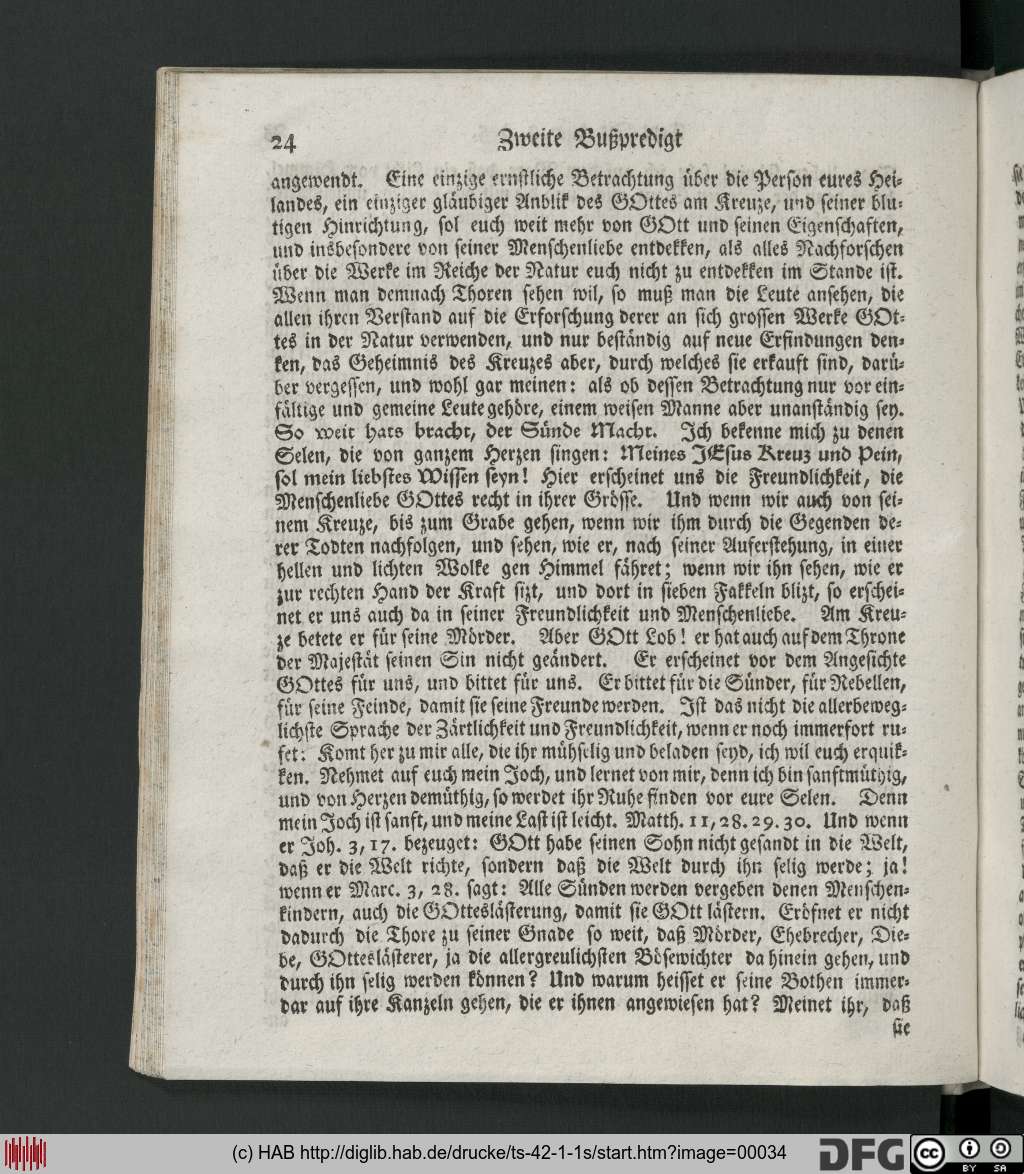 24 Zweite Bußpredigt
angewendt. Eine einzige ernstliche Betrachtung über die Person eures Hei-
landes, ein einziger gläubiger Anblik des GOttes am Kreuze, und seiner blu-
tigen Hinrichtung, sol euch weit mehr von GOtt und seinen Eigenschaften,
und insbesondere von seiner Menschenliebe entdekken, als alles Nachforschen
über die Werke im Reiche der Natur euch nicht zu entdekken im Stande ist.
Wenn man demnach Thoren sehen wil, so muß man die Leute ansehen, die
allen ihren Verstand auf die Erforschung derer an sich grossen Werke GOt-
tes in der Natur verwenden, und nur beständig auf neue Erfindungen den-
ken, das Geheimnis des Kreuzes aber, durch welches sie erkauft sind, darü-
ber vergessen, und wohl gar meinen: als ob dessen Betrachtung nur vor ein-
fältige und gemeine Leute gehöre, einem weisen Manne aber unanständig sey.
So weit hats bracht, der Sünde Macht. Ich bekenne mich zu denen
Selen, die von ganzem Herzen singen: Meines JEsus Kreuz und Pein,
sol mein liebstes Wissen seyn! Hier erscheinet uns die Freundlichkeit, die
Menschenliebe GOttes recht in ihrer Grösse. Und wenn wir auch von sei-
nem Kreuze, bis zum Grabe gehen, wenn wir ihm durch die Gegenden de-
rer Todten nachfolgen, und sehen, wie er, nach seiner Auferstehung, in einer
hellen und lichten Wolke gen Himmel fähret; wenn wir ihn sehen, wie er
zur rechten Hand der Kraft sizt, und dort in sieben Fakkeln blizt, so erschei-
net er uns auch da in seiner Freundlichkeit und Menschenliebe. Am Kreu-
ze betete er für seine Mörder. Aber GOtt Lob! er hat auch auf dem Throne
der Majestät seinen Sin nicht geändert. Er erscheinet vor dem Angesichte
GOttes für uns, und bittet für uns. Er bittet für die Sünder, für Rebellen,
für seine Feinde, damit sie seine Freunde werden. Ist das nicht die allerbeweg-
lichste Sprache der Zärtlichkeit und Freundlichkeit, wenn er noch immerfort ru-
fet: Komt her zu mir alle, die ihr mühselig und beladen seyd, ich wil euch erquik-
ken. Nehmet auf euch mein Joch, und lernet von mir, denn ich bin sanftmüthig,
und von Herzen demüthig, so werdet ihr Ruhe finden vor eure Selen. Denn
mein Joch ist sanft, und meine Last ist leicht. Matth. 11, 28. 29. 30. Und wenn
er Joh. 3, 17. bezeuget: GOtt habe seinen Sohn nicht gesandt in die Welt,
daß er die Welt richte, sondern daß die Welt durch ihn selig werde; ja!
wenn er Marc. 3, 28. sagt: Alle Sünden werden vergeben denen Menschen-
kindern, auch die GOtteslästerung, damit sie GOtt lästern. Eröfnet er nicht
dadurch die Thore zu seiner Gnade so weit, daß Mörder, Ehebrecher, Die-
be, GOtteslästerer, ja die allergreulichsten Bösewichter da hinein gehen, und
durch ihn selig werden können? Und warum heisset er seine Bothen immer-
dar auf ihre Kanzeln gehen, die er ihnen angewiesen hat? Meinet ihr, daß
sie
(c) HAB http://diglib.hab.de/drucke/ts-42-1-1s/start.htm?image=00034
DFG
cc BY SA